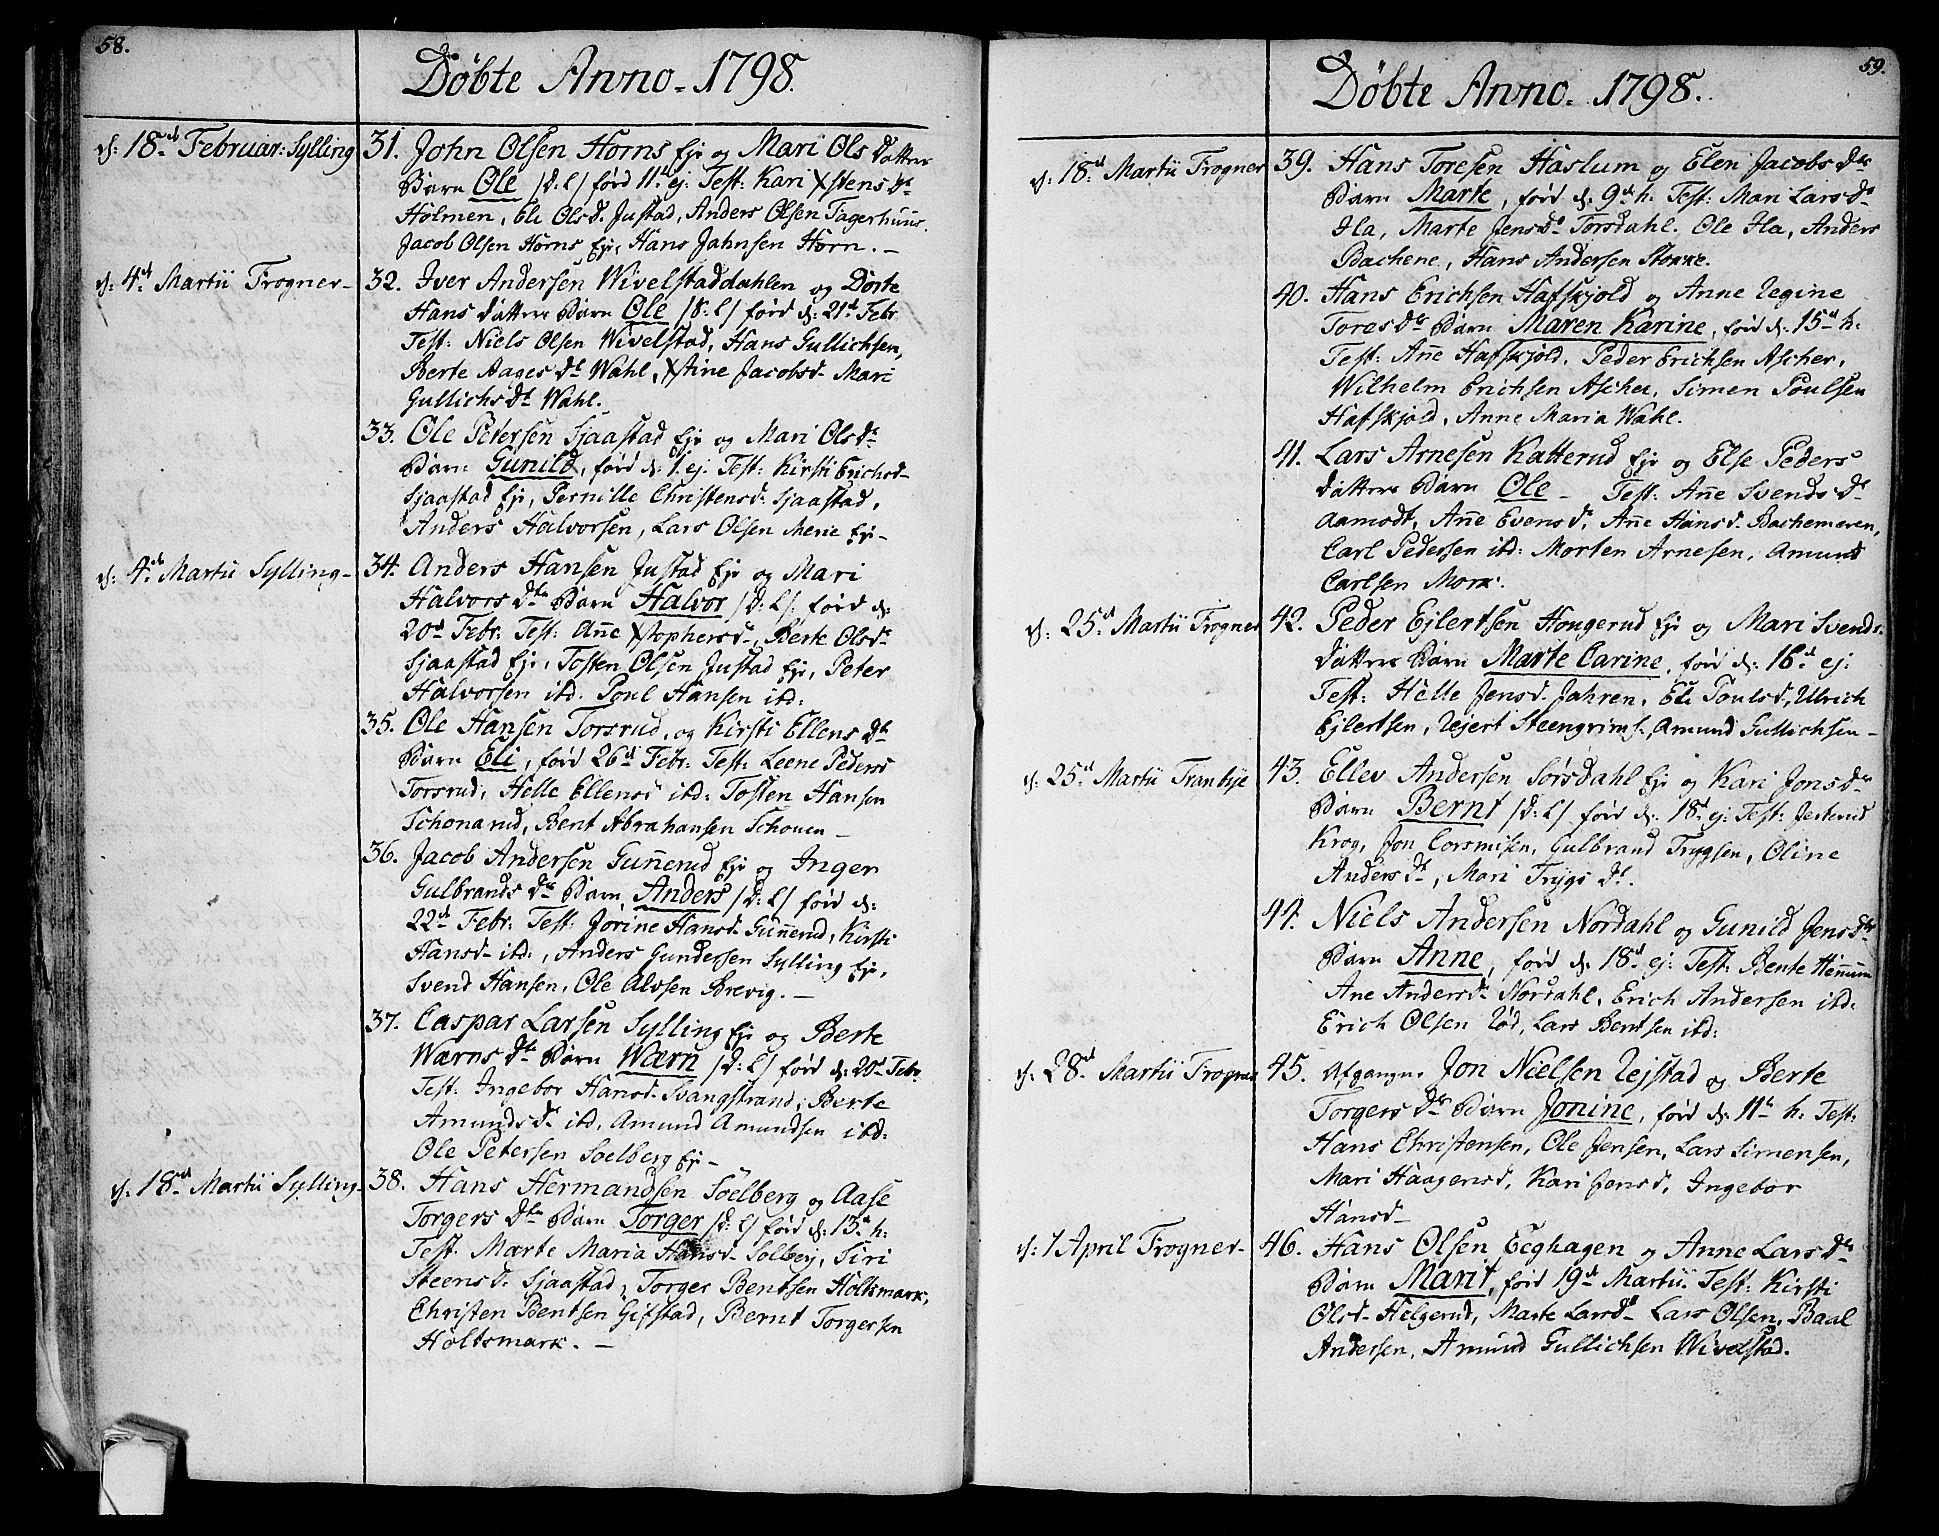 58.
Döbte Anno. 1798.
d: 18d Februar: Sylling
31. John Olsen Horns Eje og Mari Ols Datters
Barn Ole /D: L/ föed 11te ej: Test: Kari Xstens Dr
Holmen, Eli Olsd. Justad, Anders Olsen Tagerhuus.
Jacob Olsen Horns Eje, Hans Jahnsen Horn. -
d: 4d Martii Frogner-
32. Iver Andersen Wivelstaddahlen og Dorte
Hans Datters Barn Ole /S: L/ föed d: 21d Febr.
Test: Niels Olsen Wivelstad, Hans Gullichsen,
Berte Aages Dr Wahl, Xstine Jacobsd- Mari
Gullichs Dr Wahl.
33. Ole Petersen Sjaastad Eje og Mari Ols Dr
Barn Gunild, föed d: 1 ej: Test: Kirsti Erichsd-
Sjaastad Eje, Pernille Christensd: Sjaastad,
Anders Halvorsen, Lars Olsen Merie Eje-
d: 4d Martii Sylling-
34. Anders Hansen Justad Eje og Mari
Halvors Dtr Barn Halvor /D: L/: föed d:
20d Febr: Test: Anne Xstophersd-, Berte Olsd-
Sjaastad Eje, Tosten Olsen Justad Eje, Peter
Halvorsen itd: Poul Hansen itd:
35. Ole Hansen Torsrud, og Kirsti Ellens Dr
Barn Eli, föed 26d Febr: Test: Leene Peders
Torsrud, Helle Ellens itd: Tosten Hansen
Schonarud, Bent Abrahansen Schouen -
36. Jacob Andersen Gunnerud Eje og Inger
Gulbrands Dr Barn Anders /D: L/ föed d:
22d Febr: Test: Jorine Hansd- Gunnerud, Kirsti
Hansd- itd:, Anders Gundersen Sylling Eje,
Svend Hansen, Ole Alvsen Brevig. -
37. Caspar Larsen Sylling Eje og Berte
Wærns Dtr Barn Wærn /D: L/ föed d: 20d Febr.
Test: Ingebor Hansd- Svangstrand, Berte
Amunds Dr itd, Amund Amundsen itd:
Ole Petersen Soelberg Eje-
d: 18d Martii Sylling-
38. Hans Hermandsen Söelberg og Aase
Torgers Dtr Barn Torger /D: L/ föed d: 13d h:
Test: Marte Maria Hansd- Solberg, Siri
Steensd: Sjaastad, Torger Bentsen Holtsmark,
Christen Bentsen Gifstad, Bernt Torgersen
Holtsmark. -
59.
Döbte Anno. 1798.
d: 18d Martii Frogner
39. Hans Toresen Haslum og Elen Jacobs Dr
Barn Marte, föed d: 9d h: Test: Mari Larsd-
Hla, Marte Jens Dr Torsdahl. Ole Hla, Anders
Bachene, Hans Andersen Stokke.
40. Hans Erichsen Hafskjold og Anne Regine
Tores Dr Barn Maren Karine, föed d: 15d h:
Test: Anne Hafskjold, Peder Erichsen Ascher,
Wilhelm Erichsen Ascher, Simen Poulsen
Hafskjold, Anne Maria Wahl.
41. Lars Arnesen Katterud Eje og Else Peders
Datters Barn Ole - Test: Anne Svends Dr
Aamodt, Anne Evensd, Anne Hansd- Bachemeren,
Carl Pedersen itd: Morten Arnesen, Amund
Carlsen Mork.
d: 25d Martii Frogner
42. Peder Ejlertsen Hougerud Eje og Mari Svends
Datters Barn Marte Carine, föed d: 16d ej:
Test: Helle Jensd. Jahren, Eli Poulsd, Ulrich
Ejlertsen, Rejert Steengrims., Amund Gullichsen-
d: 25d Martii Tranbye
43. Ellev Andersen Sörsdahl Eje og Kari Jons Dr
Barn Bernt /D: L/ föed d: 18d ej: Test:
Krog, Jon Corsmisen, Gulbrand Trygsen, Oline
Anders Dr, Mari Trygs Dr.
44. Niels Andersen Nordahl og Gunild Jens Dtr
Barn Anne, föed d: 18d ej: Test: Bente Hennum
Ane Andersd- Nordahl, Erich Andersen itd:
Erich Olsen Röd, Lars Bentsen itd:
d: 28d Martii Frogner
45. Afgangne Jon Nielsen Rejstad og Berte
Torgers Dr Barn Jonine, föed d: 11te h: Test:
Hans Christensen, Ole Jensen, Lars Simensen,
Mari Haagensd, Kari Jensd, Ingebor
Hansd-
d: 1 April Frogner-
46. Hans Olsen Eeghagen og Anne Lars Dr
Barn Marit, föed 19d Martii. Test: Kirsti
Olsd- Helgerud, Marte Larsd- Lars Olsen, Baal
Andersen, Amund Gullichsen Wivelstad.